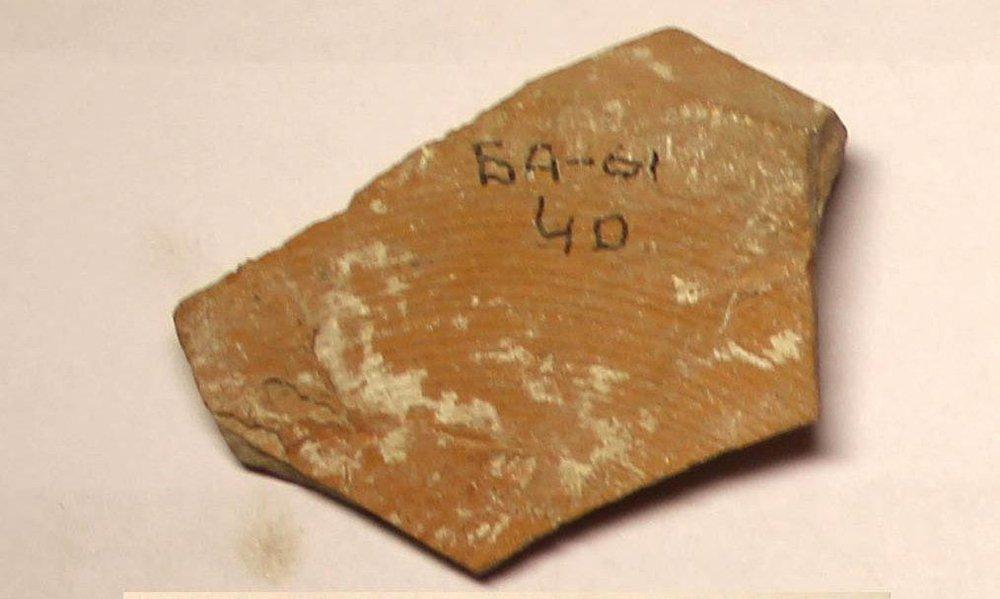 БА-61
40